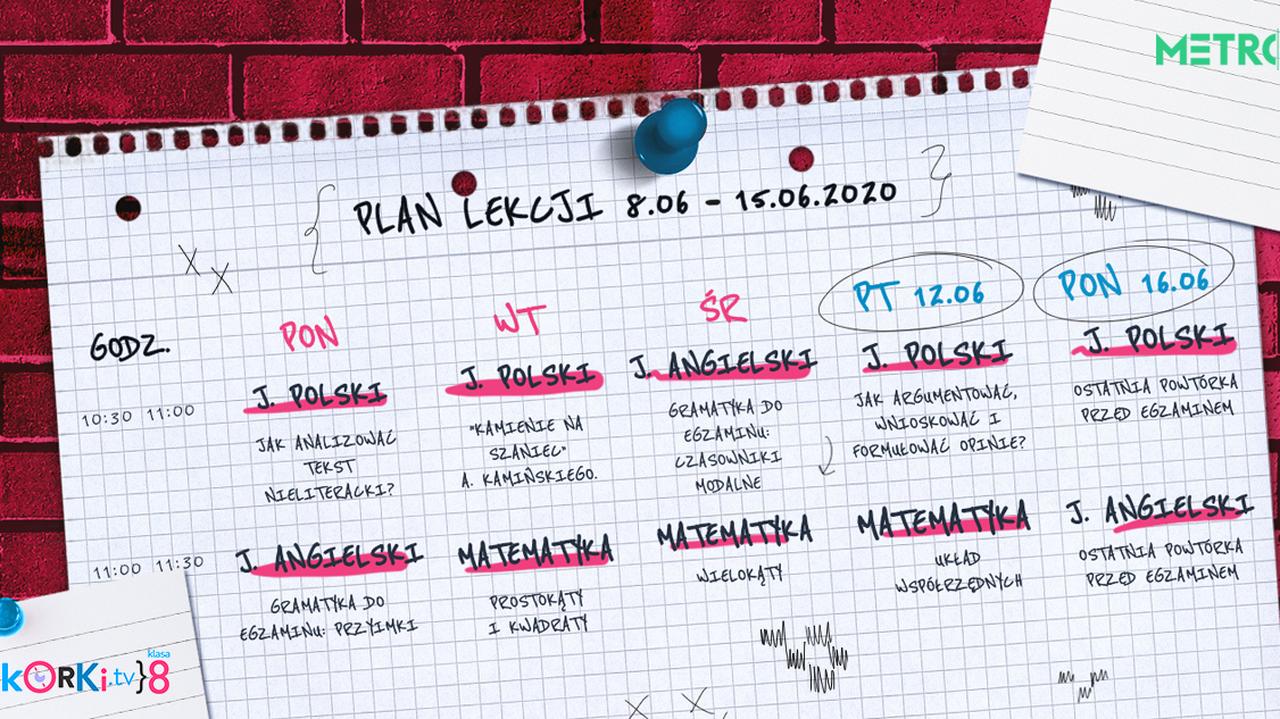 METRO
PLAN LEKCJI 8.06 - 15.06.2020
GODZ.
PON
WT
ŚR
PT 12.06
PON 16.06
10:30 11:00
J. POLSKI
JAK ANALIZOWAĆ
TEKST
NIELITERACKI?
J. POLSKI
"KAMIENIE NA
SZANIEC"
A. KAMIŃSKIEGO.
J. ANGIELSKI
GRAMATYKA DO
EGZAMINU:
CZASOWNIKI
MODALNE
J. POLSKI
JAK ARGUMENTOWAĆ,
WNIOSKOWAĆ I
FORMUŁOWAĆ OPINIE?
J. POLSKI
OSTATNIA POWTÓRKA
PRZED EGZAMINEM
11:00 11:30
J. ANGIELSKI
GRAMATYKA DO
EGZAMINU: PRZYIMKI
MATEMATYKA
PROSTOKĄTY
I KWADRATY
MATEMATYKA
WIELOKĄTY
MATEMATYKA
UKŁAD
WSPÓŁRZĘDNYCH
J. ANGIELSKI
OSTATNIA POWTÓRKA
PRZED EGZAMINEM
klasa
kORKi.tv}8